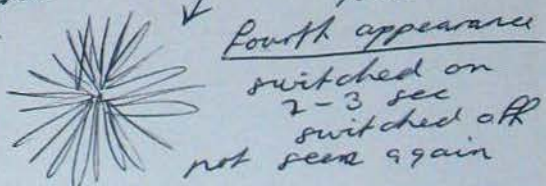 Fourth appearance
switched on
2-3 sec
switched off
not seen again